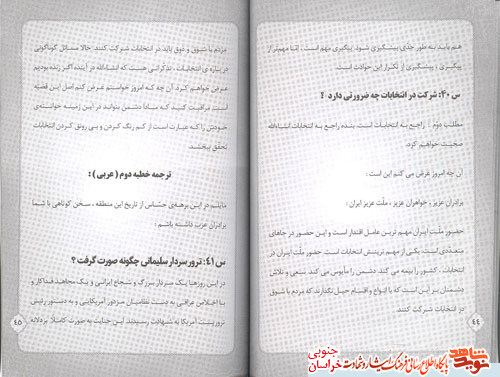 هم باید به طور جدّی پیشگیری شود. پیگیری مهم است، امّا مهم‌تر از
پیگیری، پیشگیری از تکرار این حوادث است.
س ۴۰: شرکت در انتخابات چه ضرورتی دارد ؟
مطلب دوّم راجع به انتخابات است. بنده راجع به انتخابات ان‌شاءالله
صحبت خواهم کرد.
آن چه امروز عرض می کنم این است:
برادران عزیز، خواهران عزیز، ملّت عزیز ایران:
حضور ملّت ایران مهم ترین عامل اقتدار است و این حضور در جاهای
متعدّدی است. یکی از مهم ترینش انتخابات است. حضور ملّت ایران در
انتخابات، کشور را بیمه می کند، دشمن را مأیوس می کند. سعی و تلاش
دشمنان بر این است که با انواع و اقسام حیل نگذارند که مردم با شوق و
در انتخابات شرکت کنند.
۴۴
مردم با شوق و ذوق باید در انتخابات شرکت کنند. حالا مسائل گوناگونی
درباره ی انتخابات، تذکّراتی هست که ان‌شاءالله در آینده اگر زنده بودیم
عرض خواهم کرد. آن چه که امروز خواستم عرض کنم اصل این قضیّه
است. مراقبت کنید که مبادا دشمن بتواند در این زمینه خواسته‌ی
خودش را که عبارت است از کم رنگ کردن و بی رونق کردن انتخابات
تحقّق ببخشد.
ترجمه خطبه دوم (عربی):
مایلم در این برهه‌ی حسّاس از تاریخ این منطقه، سخن کوتاهی با شما
برادران عرب داشته باشم:
س ۴۱: ترور سردار سلیمانی چگونه صورت گرفت ؟
در این روزها یک سردار بزرگ و شجاع ایرانی و یک مجاهد فداکار و
با اخلاص عراقی به دست نظامیان مزدور آمریکایی و به دستور رئیس
تروریست آمریکا به شهادت رسیدند. این جنایت به صورت کاملاً بزدلانه
۴۵
نوید شاهد
پایگاه اطلاع رسانی فرهنگ ایثار و شهادت
خراسان جنوبی